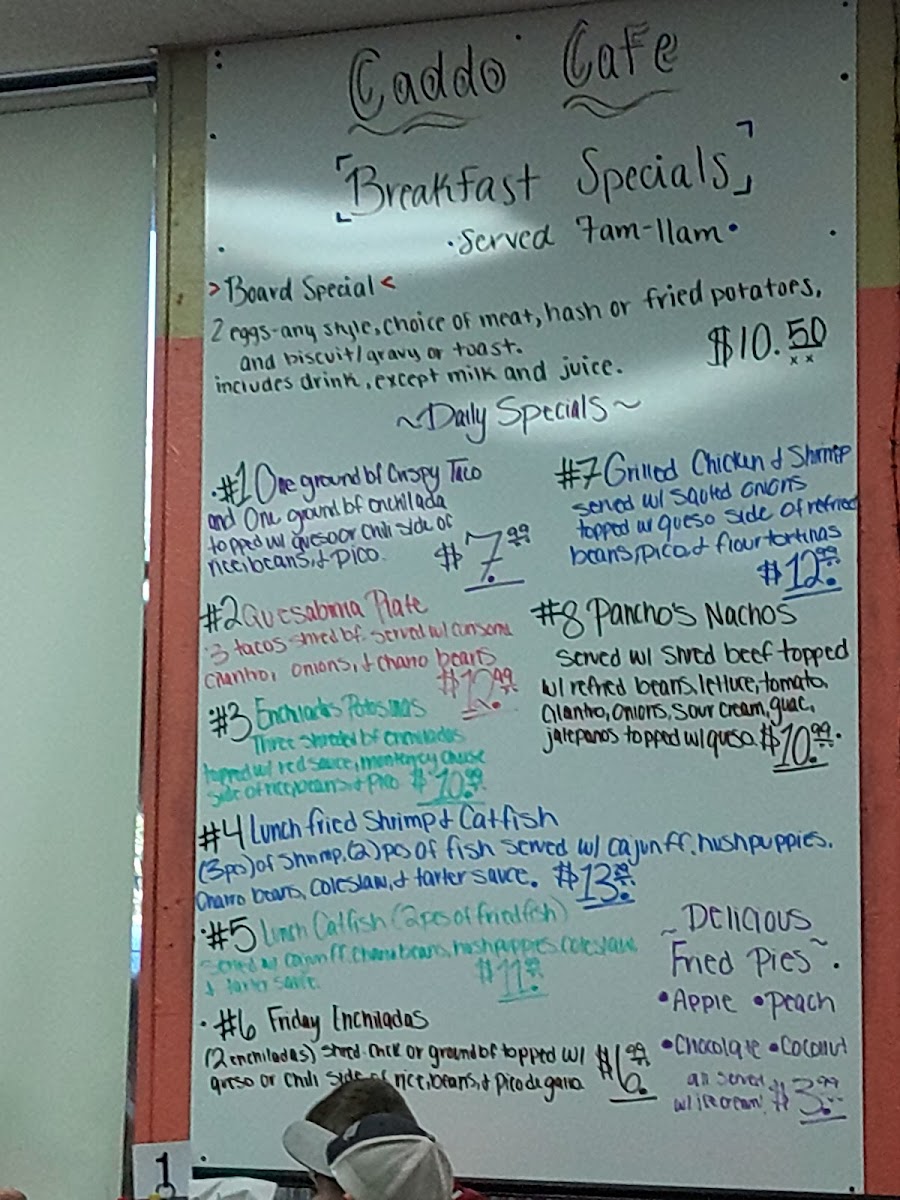 Caddo Cafe
Breakfast Specials
· Served 7am-11am ·
> Board Special <
2 eggs-any style, choice of meat, hash or fried potatoes,
and biscuit/gravy or toast.
$10.50
includes drink, except milk and juice.
~Daily Specials~
· #1 One ground bf Crispy Taco
and One ground bf enchilada
topped w/ queso or chili side of
rice, beans, & pico.
$7.99
#2 Quesabirria Plate
3 tacos shred bf. served w/ consome
cilantro, onions, & charro beans
$10.99
#3 Enchiladas Potosinas
Three shredded bf enchiladas
topped w/ red sauce, monterey cheese
side of rice, beans, & pico $10.99
#4 Lunch fried Shrimp & Catfish
(3pcs) of shrimp, (2) pcs of fish served w/ cajun ff, hushpuppies,
charro beans, coleslaw, & tarter sauce. $13.99
· #5 Lunch Catfish (2pcs of fried fish)
served w/ cajun ff, charro beans, hushpuppies, coleslaw,
& tarter sauce. $11.99
· #6 Friday Enchiladas
(2 enchiladas) shred chick or ground bf topped w/
queso or chili side of rice, beans, & pico de gallo
$6.99
#7 Grilled Chicken & Shrimp
served w/ sauted onions
topped w/ queso side of refried
beans, pico, & flour tortillas
$12.99
#8 Pancho's Nachos
served w/ shred beef topped
w/ refried beans, lettuce, tomato,
cilantro, onions, sour cream, guac,
jalepanos topped w/ queso. $10.99.
~ Delicious
Fried Pies ~.
• Apple • Peach
• Chocolate • Coconut
all served
w/ ice cream! $3.99
1